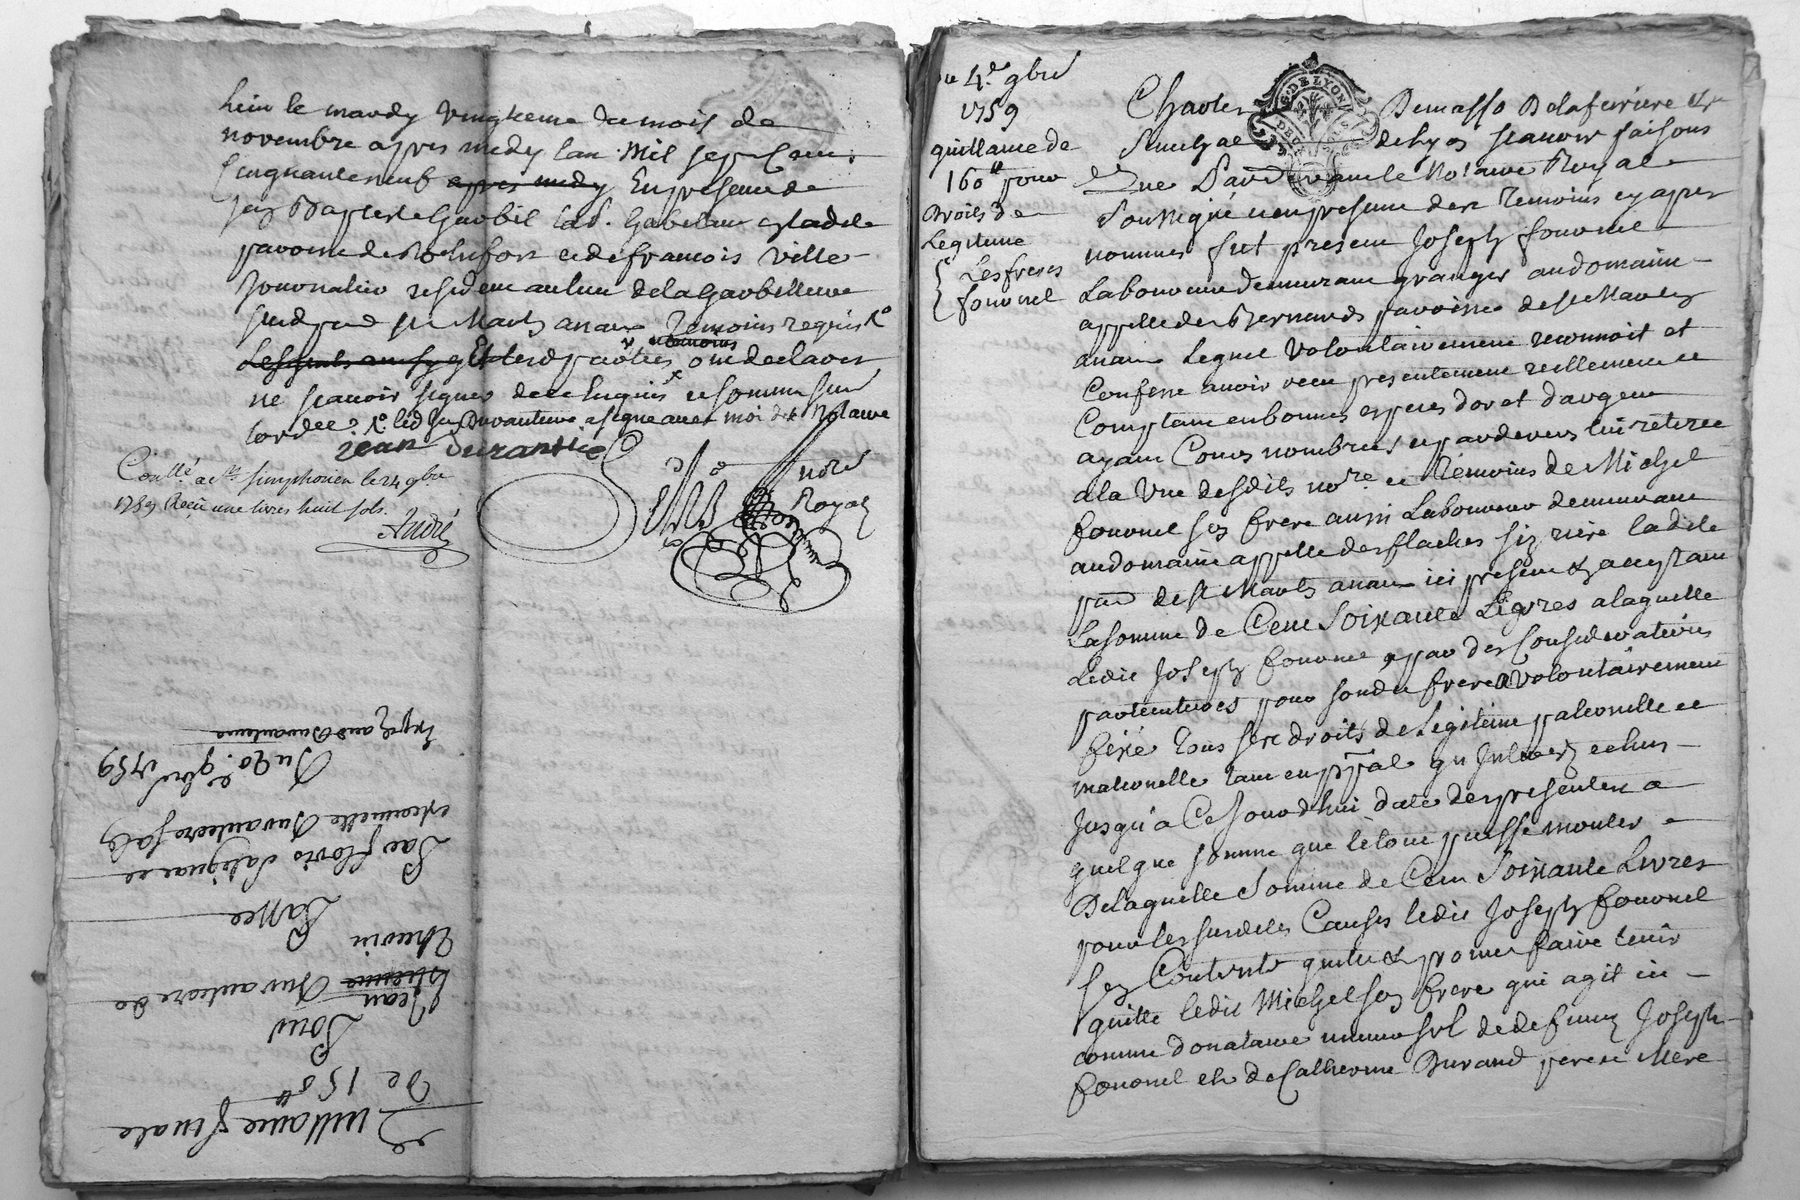 heur le mardy vingtieme du mois de
novembre apres midy lan mil sept cens
cinquante neuf apres midy En presence de
jean Baptiste lad. Gabeleur de lad.
paroisse de Rochefort et de francois Ville
Journalier resident au lieu de la
susd. par. st Martz anaux Temoins requis
Et lesd. parties ont declaré
ne scavoir signer de ce Enquis et somme sur
lord. led. jean Duranteure a signé avec moi dit Notaire
jean duranthie
Conllé a st simphorien le 24 9bre
1759 Reçu une livres huit sols.
André
notre
Royal
Quittance finale
De 150 ll
Pour
Jean
Etienne Duranteure de
Thurin
Passee
Par florio Salignat et
estiennette Duranteure
Du 20e 9bre 1759
du 4e 9bre
1759
quittance de
160 ll pour
Droits de
Legitime
Les freres
fournel
Charles Demasso Delaferriere
Senechal de Lyon scavoir faisons
Que Pardevant le Notaire Royal
Soussigné et en presence des Temoins cy apres
nommes fut present Joseph fournel
Laboureur demeurant granger au domaine
appelle des Bernards paroisse de st Martz
anaux Lequel Volontairement reconnoit et
Confesse avoir recu presentement reellement et
Comptant en bonnes especes d'or et d'argent
ayant Cours nombrees et pardevers lui retirée
a la Vue desdits nore et Temoins de Michel
fournel son frere aussi Laboureur demeurant
au domaine appelle des flaches siz riere ladite
par. de st Martz anaux ici present & acceptant
La somme de Cent Soixante Livres a laquelle
Ledit Joseph fournel par des Considerations
particulieres pour sondit frere a volontairement
fixé Tous ses droits de Legitime paternelle et
maternelle tant en ppal qu'Interez echus
Jusqu'à Ce jourdhui datte des presentes a
quelque somme que le tout puisse monter
Delaquelle Somme de Cent Soixante Livres
pour les susdites Causes ledit Joseph fournel
sez Contente quitte & promet faire tenir
quitte ledit Michel son frere qui agit ici
comme donataire universel de defunt Joseph
fournel et de Catherine Durand pere et Mere
G. DE LYON